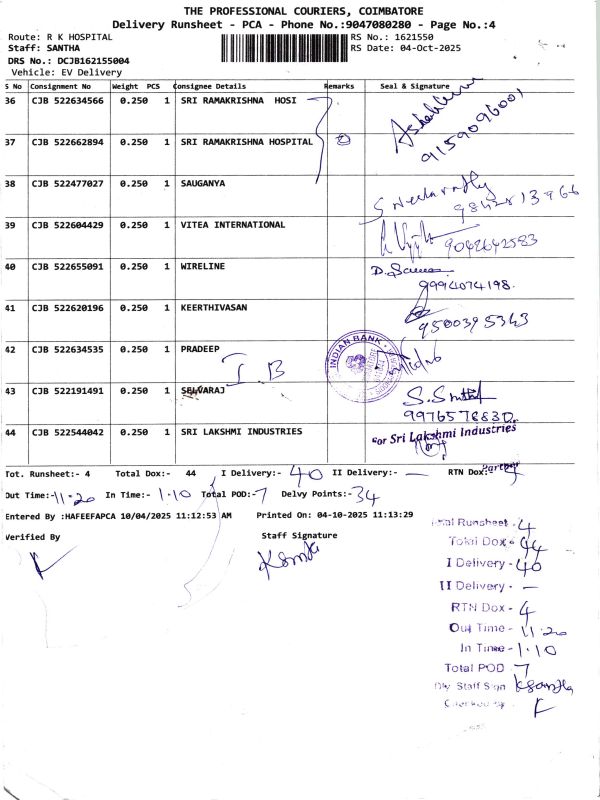 THE PROFESSIONAL COURIERS, COIMBATORE
Delivery Runsheet - PCA - Phone No.:9047080280 - Page No.:4
Route: R K HOSPITAL RS No.: 1621550
Staff: SANTHA RS Date: 04-Oct-2025
DRS No.: DCJB162155004
Vehicle: EV Delivery
S No Consignment No Weight PCS Consignee Details Remarks Seal & Signature
36 CJB 522634566 0.250 1 SRI RAMAKRISHNA HOSI
9159096001
37 CJB 522662894 0.250 1 SRI RAMAKRISHNA HOSPITAL
38 CJB 522477027 0.250 1 SAUGANYA
39 CJB 522604429 0.250 1 VITEA INTERNATIONAL 9042642583
40 CJB 522655091 0.250 1 WIRELINE
9994074198
41 CJB 522620196 0.250 1 KEERTHIVASAN
9500395343
42 CJB 522634535 0.250 1 PRADEEP I.B INDIAN BANK
43 CJB 522191491 0.250 1 SELVARAJ
9976578830
44 CJB 522544042 0.250 1 SRI LAKSHMI INDUSTRIES For Sri Lakshmi Industries
Partner
Tot. Runsheet:- 4 Total Dox:- 44 I Delivery:- 40 II Delivery:- — RTN Dox:- 4
Out Time:- 11.20 In Time:- 1.10 Total POD:- 7 Delvy Points:- 34
Entered By :HAFEEFAPCA 10/04/2025 11:12:53 AM Printed On: 04-10-2025 11:13:29
Verified By Staff Signature
Total Runsheet - 4
Total Dox - 44
I Delivery - 40
II Delivery - —
RTN Dox - 4
Out Time - 11.20
In Time - 1.10
Total POD - 7
Dly Staff Sign Ksantha
Checked by